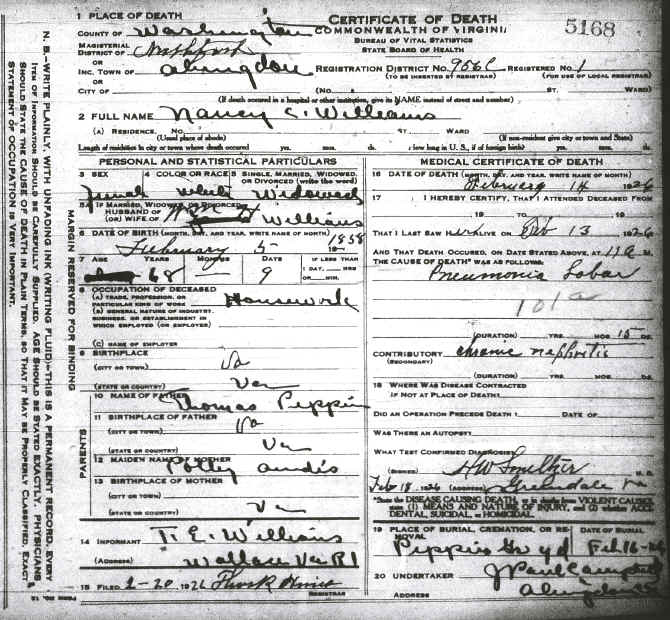 1 PLACE OF DEATH
CERTIFICATE OF DEATH
5168
COUNTY OF Washington
COMMONWEALTH OF VIRGINIA
MAGISTERIAL DISTRICT OF
BUREAU OF VITAL STATISTICS
STATE BOARD OF HEALTH
OR
INC. TOWN OF Abingdon
REGISTRATION DISTRICT NO. 956C REGISTERED NO. 1
(TO BE INSERTED BY REGISTRAR) (FOR USE OF LOCAL REGISTRAR)
OR
CITY OF (NO. ST. WARD)
(If death occurred in a hospital or other institution, give its NAME instead of street and number)
2 FULL NAME Nancy E. Williams
(A) RESIDENCE. NO. ST. WARD
(Usual place of abode) (If non-resident give city or town and State)
Length of residence in city or town where death occurred yrs. mos. ds. How long in U. S., if of foreign birth? yrs. mos. ds.
PERSONAL AND STATISTICAL PARTICULARS
3 SEX 4 COLOR OR RACE 5 SINGLE, MARRIED, WIDOWED, OR DIVORCED (write the word)
Female White Widowed
5A IF MARRIED, WIDOWED, OR DIVORCED
HUSBAND OF
(OR) WIFE OF Williams
6 DATE OF BIRTH (MONTH, DAY, AND YEAR, WRITE NAME OF MONTH)
February 5 1858
7 AGE YEARS MONTHS DAYS IF LESS THAN 1 DAY, HRS OR MIN.
68 9
8 OCCUPATION OF DECEASED
(A) TRADE, PROFESSION, OR PARTICULAR KIND OF WORK Housework
(B) GENERAL NATURE OF INDUSTRY, BUSINESS, OR ESTABLISHMENT IN WHICH EMPLOYED (OR EMPLOYER)
(C) NAME OF EMPLOYER
9 BIRTHPLACE
(CITY OR TOWN) Va
(STATE OR COUNTRY) Va
10 NAME OF FATHER Thomas Pippin
11 BIRTHPLACE OF FATHER
(CITY OR TOWN) Va
(STATE OR COUNTRY) Va
12 MAIDEN NAME OF MOTHER Polly
13 BIRTHPLACE OF MOTHER
(CITY OR TOWN)
(STATE OR COUNTRY) Va
PARENTS
14 INFORMANT T. E. Williams
(ADDRESS) Wallace Va R1
15 FILED 2-20 1926
REGISTRAR
MEDICAL CERTIFICATE OF DEATH
16 DATE OF DEATH (MONTH, DAY, AND YEAR, WRITE NAME OF MONTH)
February 14 1926
17 I HEREBY CERTIFY, THAT I ATTENDED DECEASED FROM
19 TO 19
THAT I LAST SAW her ALIVE ON Feb 13 1926
AND THAT DEATH OCCURRED, ON DATE STATED ABOVE, AT 11 a M.
THE CAUSE OF DEATH* WAS AS FOLLOWS:
Pneumonia Lobar
101a
(DURATION) YRS. MOS. 15 DS.
CONTRIBUTORY chronic nephritis
(SECONDARY)
(DURATION) YRS. MOS. DS.
18 WHERE WAS DISEASE CONTRACTED
IF NOT AT PLACE OF DEATH?
DID AN OPERATION PRECEDE DEATH? DATE OF
WAS THERE AN AUTOPSY?
WHAT TEST CONFIRMED DIAGNOSIS?
(SIGNED) H W Smeltzer M. D.
Feb 18, 1926 (ADDRESS) Greendale Va
*State the DISEASE CAUSING DEATH, or in deaths from VIOLENT CAUSES, state (1) MEANS AND NATURE OF INJURY, and (2) whether ACCIDENTAL, SUICIDAL, or HOMICIDAL.
19 PLACE OF BURIAL, CREMATION, OR REMOVAL DATE OF BURIAL
Pippin Gr yd Feb 16-26
20 UNDERTAKER J Paul Campbell
ADDRESS Abingdon Va
MARGIN RESERVED FOR BINDING
N. B.—WRITE PLAINLY, WITH UNFADING INK (WRITING FLUID)—THIS IS A PERMANENT RECORD. EVERY
ITEM OF INFORMATION SHOULD BE CAREFULLY SUPPLIED. AGE SHOULD BE STATED EXACTLY. PHYSICIANS
SHOULD STATE THE CAUSE OF DEATH IN PLAIN TERMS, SO THAT IT MAY BE PROPERLY CLASSIFIED. EXACT
STATEMENT OF OCCUPATION IS VERY IMPORTANT.
FORM NO. 12